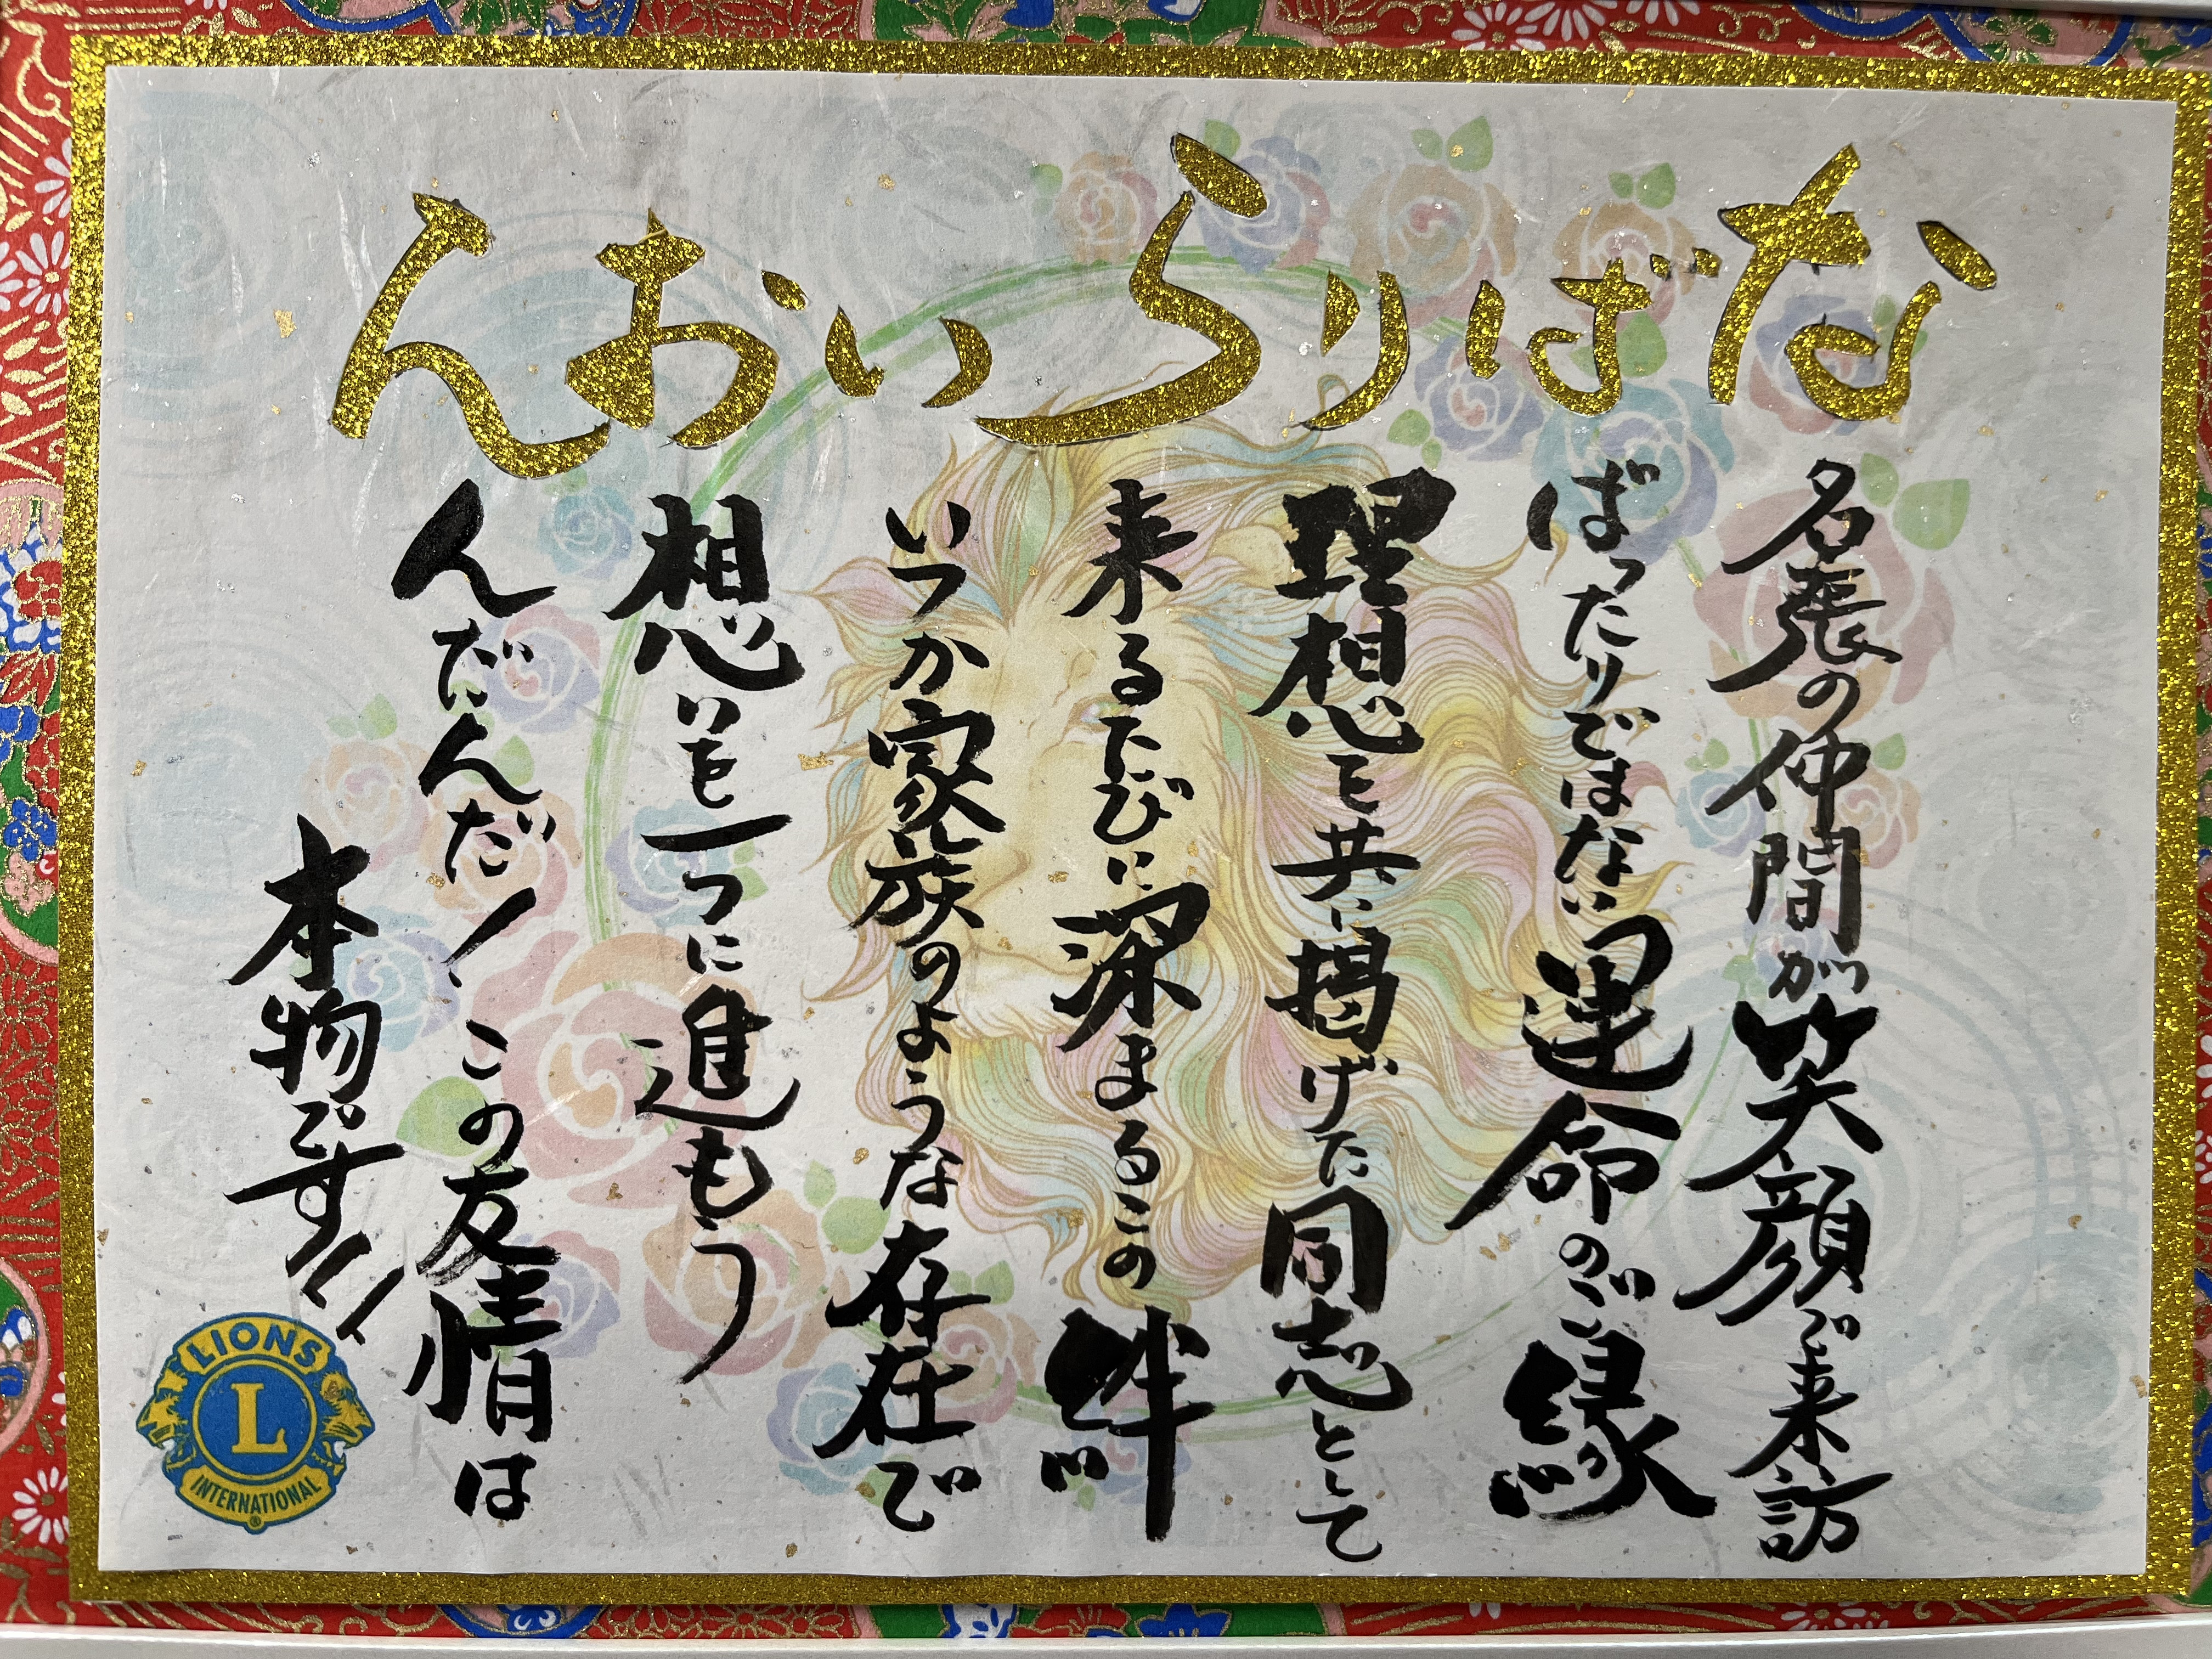 なばりらいおん
名張の仲間が笑顔で来訪
ばったりではない運命のご縁
理想を共に掲げた同志として
来るたびに深まるこの絆
いつか家族のような存在で
想いを一つに進もう
んだんだ！この友情は
本物です!!
LIONS
L
INTERNATIONAL
®